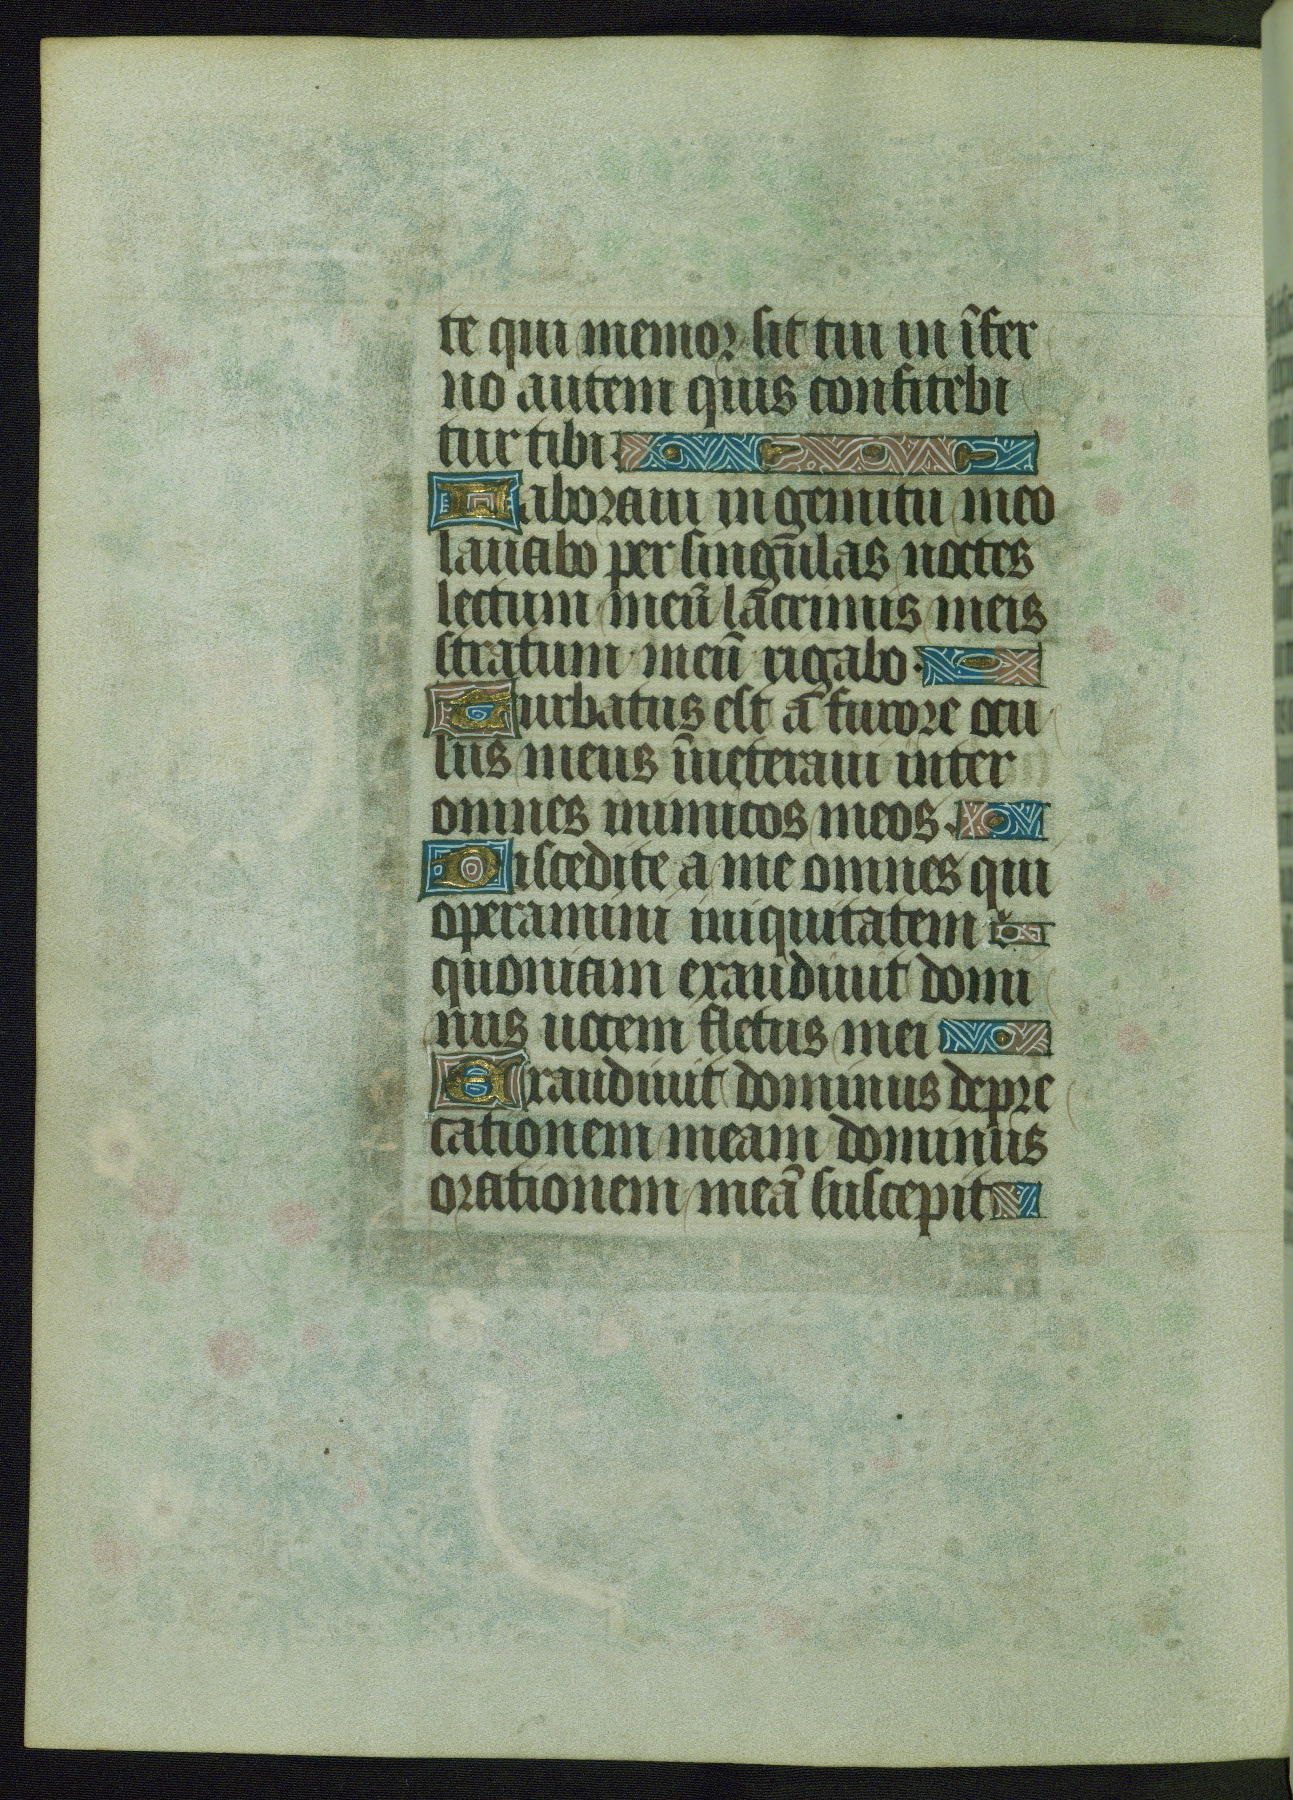 te qui memor sit tui in īfer
no autem quis confitebi
tur tibi.
Laboraui in gemitu meo
lauabo per singulas noctes
lectum meū lacrimis meis
stratum meū rigabo.
Turbatus est a furore ocu
lus meus īueteraui inter
omnes inimicos meos.
Discedite a me omnes qui
operamini iniquitatem
quoniam exaudiuit domi
nus uocem fletus mei
Exaudiuit dominus depre
cationem meam dominus
orationem meā suscepit